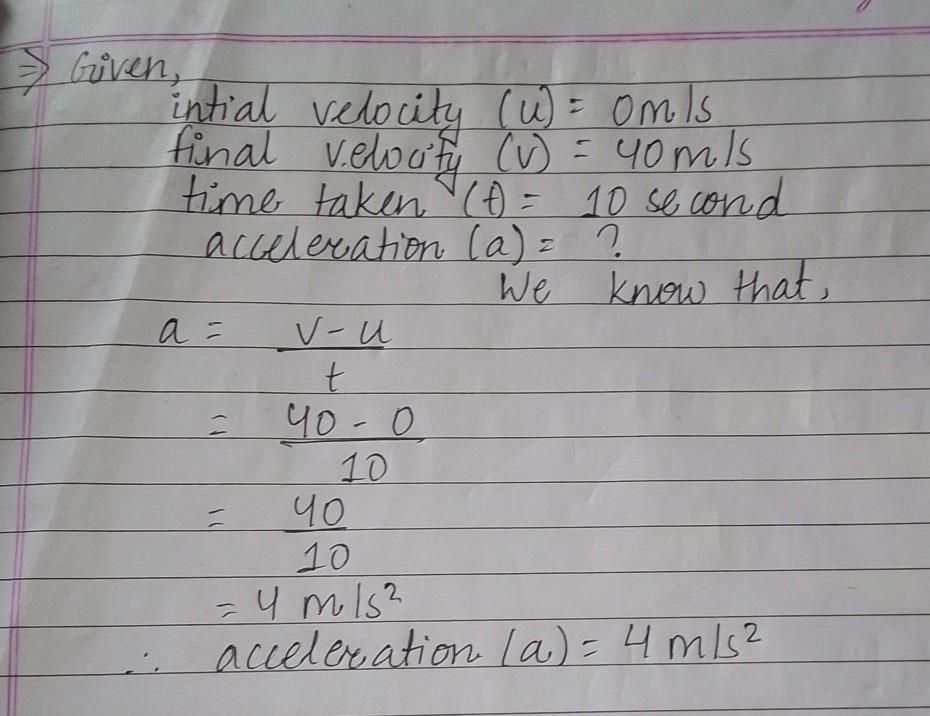 ⇒ Given,
intial velocity (u) = 0m/s
final velocity (v) = 40m/s
time taken (t) = 10 second
acceleration (a) = ?
We know that,
a = v-u
t
= 40-0
10
= 40
10
= 4 m/s²
∴ acceleration (a) = 4 m/s²